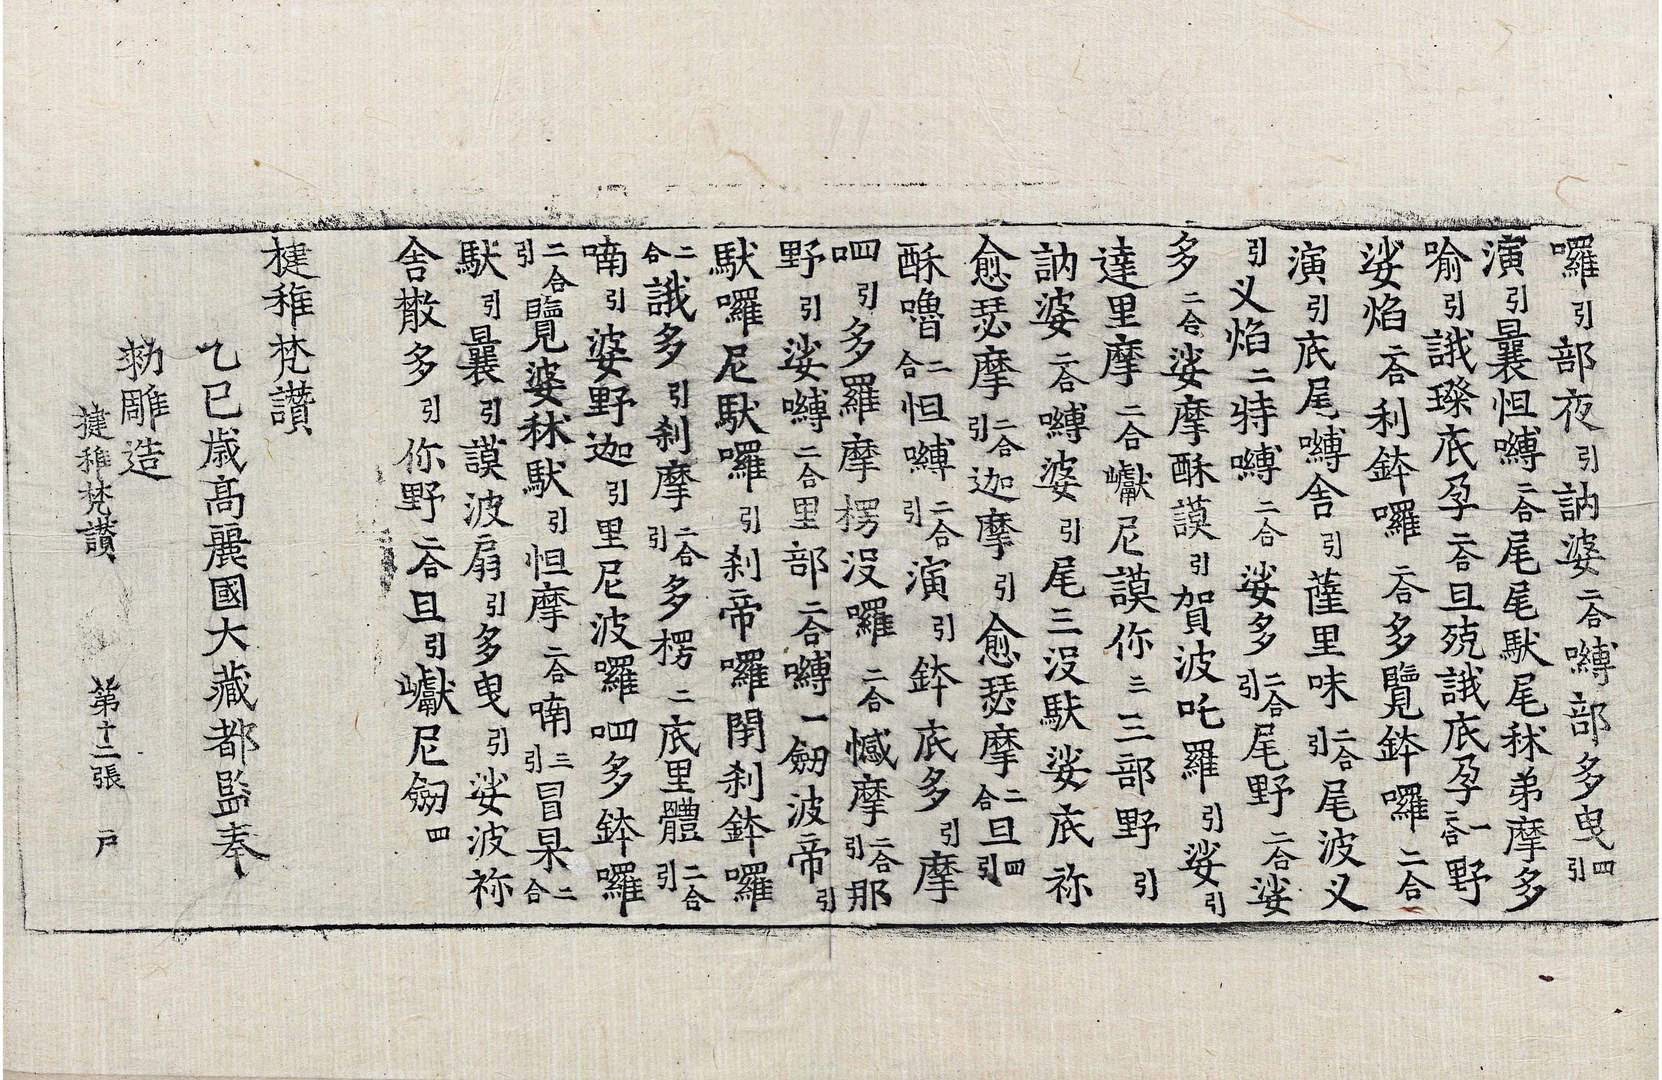 囉引部夜引訥婆二合嚩部多曳四引
演引曩怛嚩二合尾尾馱尾秫弟摩多
喻引誐璨底孕二合旦殑誐底孕一二合野
娑焰二合利鉢囉二合多覽鉢囉二合
演引底尾嚩舍引薩里味二合引尾波义
引义焰二特嚩二合娑多二合引尾野二合娑
多二合娑摩酥謨引賀波吒羅引娑引
達里摩二合巘尼謨你三三部野引
訥婆二合嚩婆引尾三沒馱娑底祢
愈瑟摩二合引迦摩引愈瑟摩二合旦四引
酥嚕二合怛嚩二合引演引鉢底多引摩
呬引多羅摩楞沒囉二合憾摩二合引那
野引娑嚩二合里部二合嚩一劒波帝引
馱囉尼馱囉引刹帝囉閉刹鉢囉
二合誐多引刹摩二合引多楞二底里體二合引
喃引婆野迦引里尼波囉呬多鉢囉
二合引覽婆秫馱引怛摩二合喃三引冒杲二合
馱引曩引謨波扇引多曳引娑波祢
舍散多引你野二合旦引巘尼劒四
揵稚梵讚
乙巳歲高麗國大藏都監奉
勅雕造
揵稚梵讚 第十二張 戸